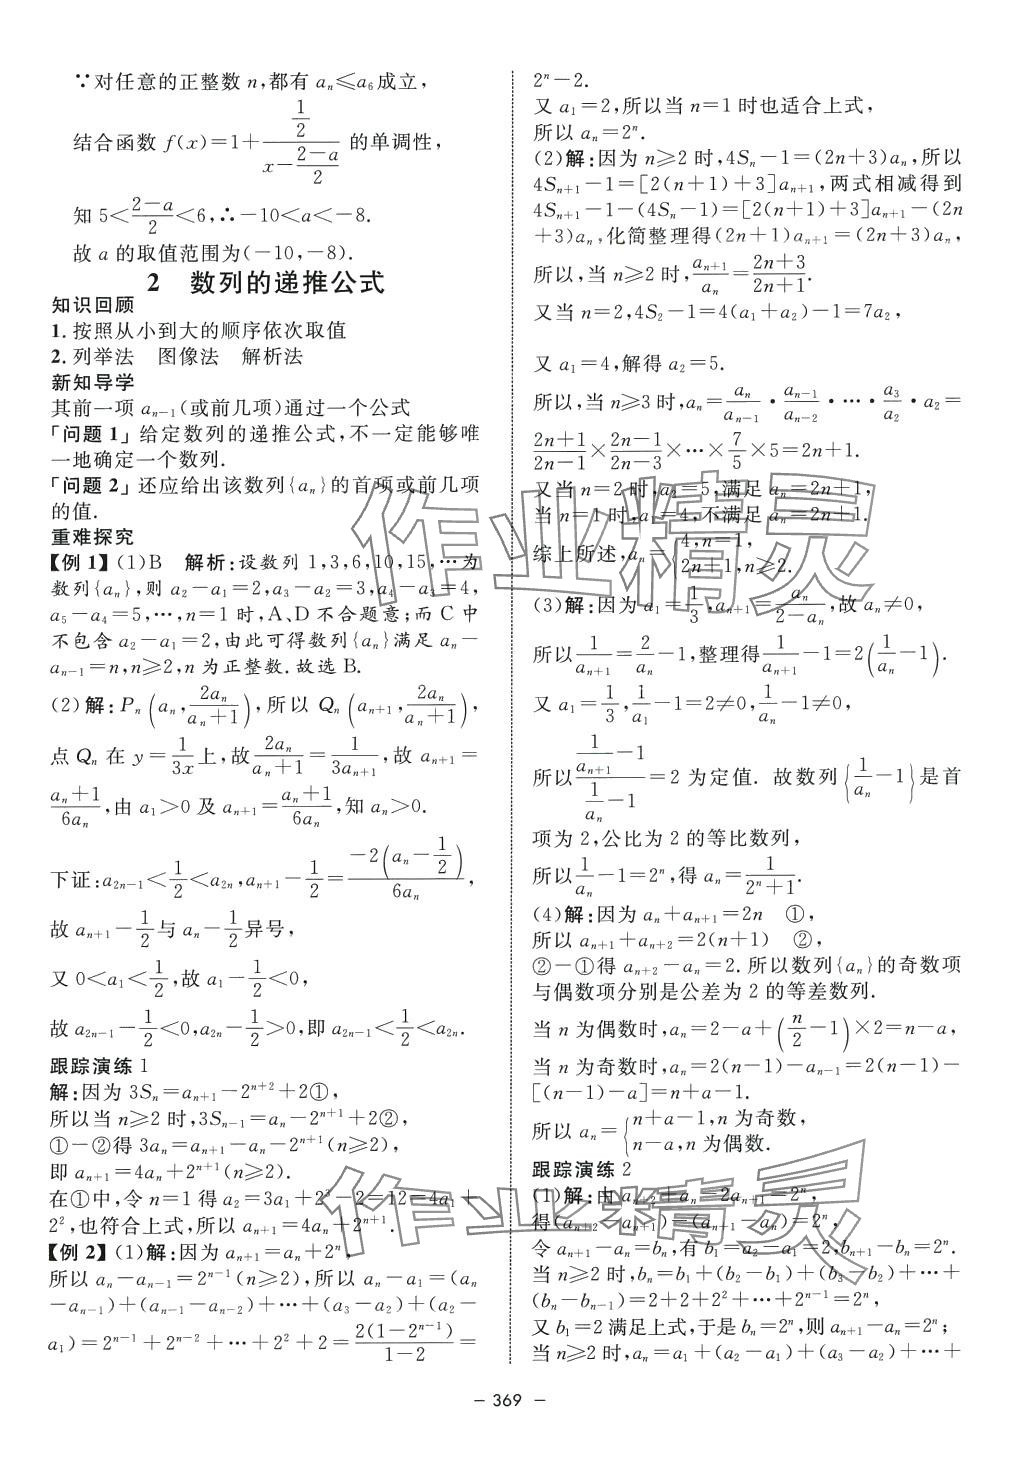 ∵对任意的正整数 n,都有 aₙ≤a₆成立,
结合函数 f(x)=1+\frac{\frac{1}{2}}{x-\frac{2-a}{2}} 的单调性,
知 5<\frac{2-a}{2}<6,∴-10<a<-8.
故 a 的取值范围为(-10,-8).
2 数列的递推公式
知识回顾
1. 按照从小到大的顺序依次取值
2. 列举法 图像法 解析法
新知导学
其前一项 a_{n-1}(或前几项)通过一个公式
「问题 1」给定数列的递推公式,不一定能够唯
一地确定一个数列.
「问题 2」还应给出该数列{a_n}的首项或前几项
的值.
重难探究
【例 1】(1)B 解析:设数列 1,3,6,10,15,…为
数列{a_n},则 a_2-a_1=2,a_3-a_2=3,a_4-a_3=4,
a_5-a_4=5,…,n=1 时,A、D 不合题意;而 C 中
不包含 a_2-a_1=2,由此可得数列{a_n}满足 a_n-
a_{n-1}=n,n≥2,n 为正整数.故选 B.
(2)解:P_n(a_n,\frac{2a_n}{a_n+1}),所以 Q_n(a_{n+1},\frac{2a_n}{a_n+1}),
点 Q_n 在 y=\frac{1}{3x}上,故\frac{2a_n}{a_n+1}=\frac{1}{3a_{n+1}},故 a_{n+1}=
\frac{a_n+1}{6a_n},由 a_1>0 及 a_{n+1}=\frac{a_n+1}{6a_n},知 a_n>0.
下证:a_{2n-1}<\frac{1}{2}<a_{2n},a_{n+1}-\frac{1}{2}=\frac{-2(a_n-\frac{1}{2})}{6a_n},
故 a_{n+1}-\frac{1}{2}与 a_n-\frac{1}{2}异号,
又 0<a_1<\frac{1}{2},故 a_1-\frac{1}{2}<0,
故 a_{2n-1}-\frac{1}{2}<0,a_{2n}-\frac{1}{2}>0,即 a_{2n-1}<\frac{1}{2}<a_{2n}.
跟踪演练 1
解:因为 3S_n=a_{n+1}-2^{n+2}+2①,
所以当 n≥2 时,3S_{n-1}=a_n-2^{n+1}+2②,
①-②得 3a_n=a_{n+1}-a_n-2^{n+1}(n≥2),
即 a_{n+1}=4a_n+2^{n+1}(n≥2).
在①中,令 n=1 得 a_2=3a_1+2^3-2=12=4a_1+
2^2,也符合上式,所以 a_{n+1}=4a_n+2^{n+1}.
【例 2】(1)解:因为 a_{n+1}=a_n+2^n,
所以 a_n-a_{n-1}=2^{n-1}(n≥2),所以 a_n-a_1=(a_n
-a_{n-1})+(a_{n-1}-a_{n-2})+…+(a_3-a_2)+(a_2-
a_1)=2^{n-1}+2^{n-2}+…+2^2+2=\frac{2(1-2^{n-1})}{1-2}=
2^n-2.
又 a_1=2,所以当 n=1 时也适合上式,
所以 a_n=2^n.
(2)解:因为 n≥2 时,4S_n-1=(2n+3)a_n,所以
4S_{n+1}-1=[2(n+1)+3]a_{n+1},两式相减得到
4S_{n+1}-1-(4S_n-1)=[2(n+1)+3]a_{n+1}-(2n
+3)a_n,化简整理得(2n+1)a_{n+1}=(2n+3)a_n,
所以,当 n≥2 时,\frac{a_{n+1}}{a_n}=\frac{2n+3}{2n+1}.
又当 n=2,4S_2-1=4(a_1+a_2)-1=7a_2,
又 a_1=4,解得 a_2=5.
所以,当 n≥3 时,a_n=\frac{a_n}{a_{n-1}}·\frac{a_{n-1}}{a_{n-2}}·…·\frac{a_3}{a_2}·a_2=
\frac{2n+1}{2n-1}×\frac{2n-1}{2n-3}×…×\frac{7}{5}×5=2n+1.
又当 n=2 时,a_2=5,满足 a_n=2n+1,
当 n=1 时,a_1=4,不满足 a_n=2n+1.
综上所述,a_n={4,n=1, 2n+1,n≥2.
(3)解:因为 a_1=\frac{1}{3},a_{n+1}=\frac{a_n}{2-a_n},故 a_n≠0,
所以\frac{1}{a_{n+1}}=\frac{2}{a_n}-1,整理得\frac{1}{a_{n+1}}-1=2(\frac{1}{a_n}-1).
又 a_1=\frac{1}{3},\frac{1}{a_1}-1=2≠0,\frac{1}{a_n}-1≠0,
所以\frac{\frac{1}{a_{n+1}}-1}{\frac{1}{a_n}-1}=2 为定值. 故数列{\frac{1}{a_n}-1}是首
项为 2,公比为 2 的等比数列,
所以\frac{1}{a_n}-1=2^n,得 a_n=\frac{1}{2^n+1}.
(4)解:因为 a_n+a_{n+1}=2n ①,
所以 a_{n+1}+a_{n+2}=2(n+1) ②,
②-①得 a_{n+2}-a_n=2.所以数列{a_n}的奇数项
与偶数项分别是公差为 2 的等差数列.
当 n 为偶数时,a_n=2-a+(\frac{n}{2}-1)×2=n-a,
当 n 为奇数时,a_n=2(n-1)-a_{n-1}=2(n-1)-
[(n-1)-a]=n+a-1.
所以 a_n={n+a-1,n 为奇数, n-a,n 为偶数.
跟踪演练 2
(1)解:由 a_{n+2}+a_n-2a_{n+1}=2^n,
得(a_{n+2}-a_{n+1})-(a_{n+1}-a_n)=2^n,
令 a_{n+1}-a_n=b_n,有 b_1=a_2-a_1=2,b_{n+1}-b_n=2^n.
当 n≥2 时,b_n=b_1+(b_2-b_1)+(b_3-b_2)+…+
(b_n-b_{n-1})=2+2+2^2+…+2^{n-1}=2^n,
又 b_1=2 满足上式,于是 b_n=2^n,则 a_{n+1}-a_n=2^n;
当 n≥2 时,a_n=a_1+(a_2-a_1)+(a_3-a_2)+…+
- 369 -
作业精灵
作业精灵